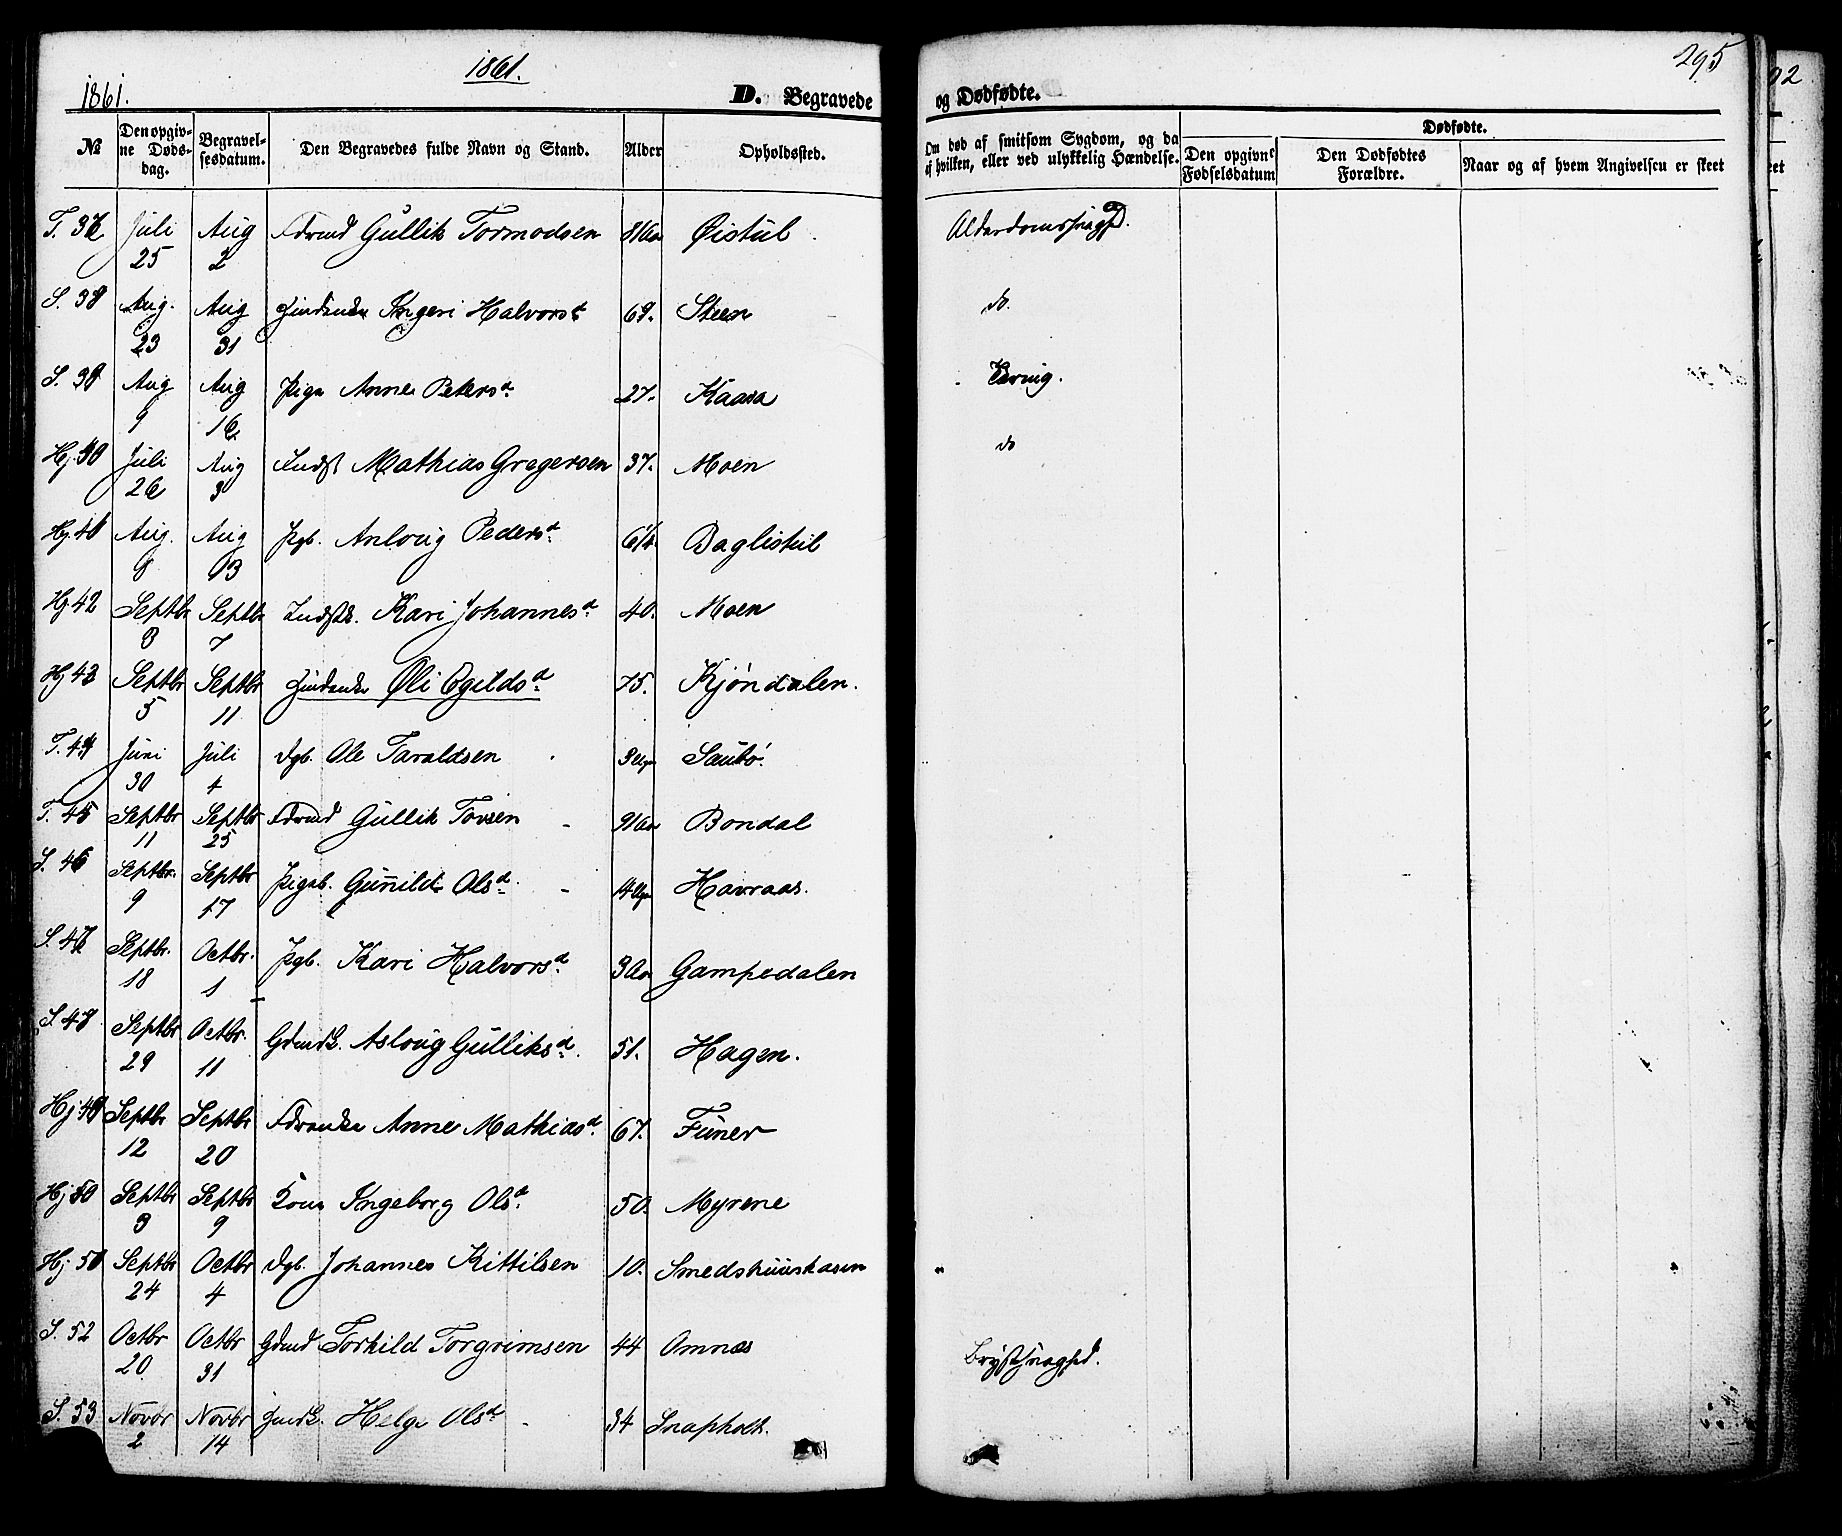 1861.
1861.
295
D. Begravede
og Dødfødte.
№ | Den opgivne Døds-dag. | Begravelsesdatum. | Den Begravedes fulde Navn og Stand. | Alder | Opholdssted. | Om død af smitsom Sygdom, og da af hvilken, eller ved ulykkelig Hændelse. | Dødfødte. | Den opgivne Fødselsdatum | Den Dødfødtes Forældre. | Naar og af hvem Angivelsen er skeet
T. 37 | Juli 25 | Aug 2 | Gullik Tormodsen | 81 Aar | Øistul | Alderdomssvaghed.
S. 38 | Aug. 23 | Aug 31 | Ingeri Halvorsd. | 69. | Steen | do.
S. 39 | Aug 9 | Aug 16 | Pige Anne Petersd. | 27. | Kaasa | Tæring.
Hj. 40 | Juli 26 | Aug 3 | Indst Mathias Gregersen | 37. | Moen | do
Hj. 41 | Aug. 8 | Aug 13 | Pgb. Anlaug Pedersd. | 6¼ | Baglistul
Hj 42 | Septbr 3 | Septbr 7 | Indstk. Kari Johannesd. | 40. | Moen
Hj 43 | Septbr 5 | Septbr 11 | Øli Egildsd. | 75. | Kjøndalen.
T. 44 | Juni 30 | Juli 4 | Dgb. Ole Taraldsen | 3 Uger | Saubø.
T. 45 | Septbr 11 | Septbr 25 | Gullik Tovsen | 91 Aar | Bondal
S. 46 | Septbr. 9 | Septbr 17 | Pigeb. Gunild Olsd. | 14 Uger | Havraas.
S. 47 | Septbr. 18 | Octbr. 1 | Pgb. Kari Halvorsd. | 3 Aar | Gampedalen
S. 48 | Septbr 29 | Octbr. 11 | Gmdk. Aslaug Gulliksd. | 51. | Hagen.
Hj 49 | Septbr 12 | Septbr 20 | Anne Mathiasd. | 67. | Funer
Hj 50 | Septbr 3 | Septbr 9 | Kone Ingeborg Olsd. | 50. | Myrene
Hj 51 | Septbr 24 | Octbr 4 | Dgb. Johannes Kittilsen | 10. | Smedshuuskasen
S. 52 | Octbr 20 | Octbr 31 | Gmd Torkild Torgrimsen | 44 | Omnæs | Brystsvaghed.
S. 53 | Novbr 2 | Novbr 14 | Helge Olsd. | 34 | Snapholt.